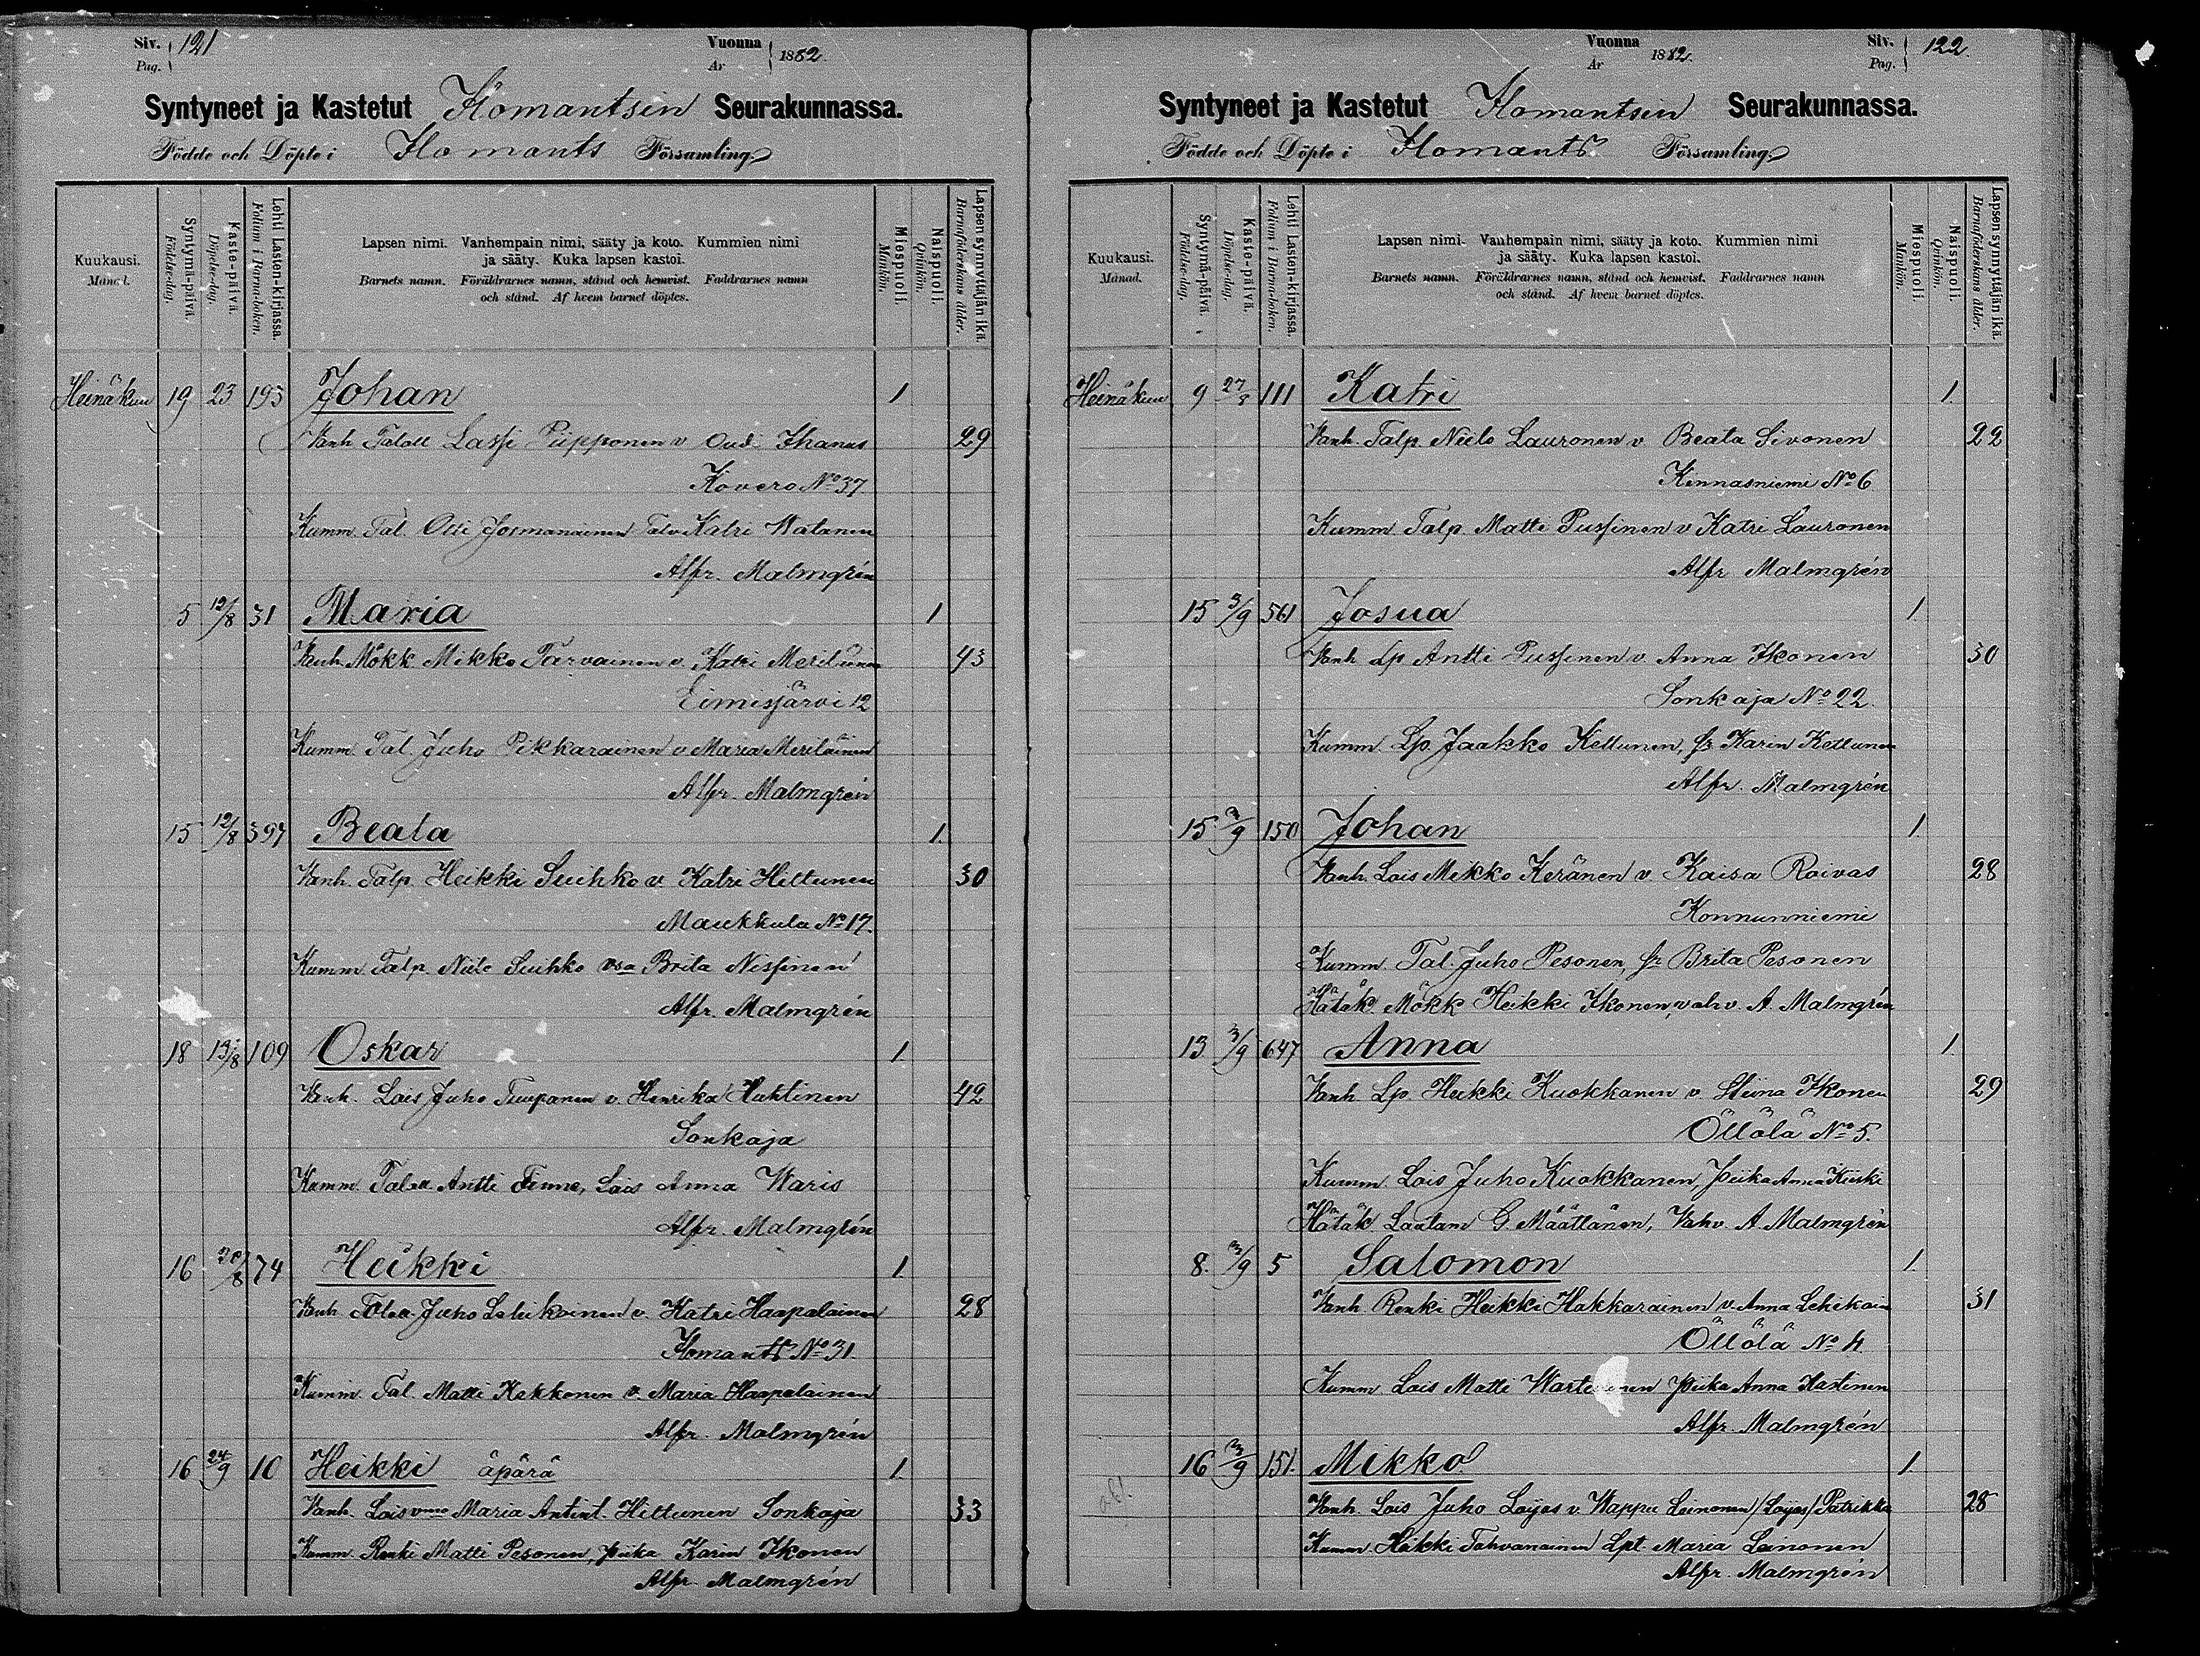 Siv. 121 Vuonna 1882.
Pag. Ar
Syntyneet ja Kastetut Ilomantsin Seurakunnassa.
Födde och Döpte i Ilomants Församling
Kuukausi.
Månad.
Syntymä-päivä.
Födelse-dag.
Kaste-päivä.
Döpelse-dag.
Lehti Lasten-kirjassa.
Folium i Barnaboken.
Lapsen nimi. Vanhempain nimi, sääty ja koto. Kummien nimi
ja sääty. Kuka lapsen kastoi.
Barnets namn. Föräldrarnes namn, stånd och hemvist. Faddrarnes namn
och stånd. Af hvem barnet döptes.
Miespuoli.
Mankön.
Naispuoli.
Qvinkön.
Lapsen synnyttäjän ikä.
Barnaföderskans ålder.
Heinäkuu 19 23 193 Johan 1
Vanh. Lassi Piipponen v Oud. Ihanus 29
Kovero No 37
Kumm. Tal. Olli Jormanainen Katri Watanen
Alfr. Malmgrén
5 12/8 31 Maria 1
Vanh. Mökk Mikko Tarvainen v. Katri Meriläinen 43
Eimisjärvi 12
Kumm. Tal. Juho Pikkarainen v Maria Meriläinen
Alfr. Malmgrén
15 12/8 397 Beata 1.
Vanh. Talp. Heikki Suihko v. Katri Hiltunen 30
Maukkula No 17.
Kumm. Talp. Niilo Suihko vsa Brita Nissinen
Alfr. Malmgrén
18 13/8 109 Oskar 1.
Vanh. Lois Juho Tuupanen v. Henrika Huhtinen 42
Sonkaja
Kumm. Antti Finne, Lois Anna Waris
Alfr. Malmgrén
16 20/8 74 Heikki 1.
Vanh. Juho Lehikoinen v. Katri Haapalainen 28
Ilomants No 31.
Kumm. Tal. Matti Kekkonen v. Maria Haapalainen
Alfr. Malmgrén
16 24/9 10 Heikki äpärä 1.
Vanh. Lois Maria Antint. Hiltunen Sonkaja 33
Kumm. Renki Matti Pesonen, piika Karin Ikonen
Alfr. Malmgrén
Vuonna 1882. Siv. 122.
Ar Pag.
Syntyneet ja Kastetut Ilomantsin Seurakunnassa.
Födde och Döpte i Ilomants Församling
Kuukausi.
Månad.
Syntymä-päivä.
Födelse-dag.
Kaste-päivä.
Döpelse-dag.
Lehti Lasten-kirjassa.
Folium i Barnaboken.
Lapsen nimi. Vanhempain nimi, sääty ja koto. Kummien nimi
ja sääty. Kuka lapsen kastoi.
Barnets namn. Föräldrarnes namn, stånd och hemvist. Faddrarnes namn
och stånd. Af hvem barnet döptes.
Miespuoli.
Mankön.
Naispuoli.
Qvinkön.
Lapsen synnyttäjän ikä.
Barnaföderskans ålder.
Heinäkuu 9 27/8 111 Katri 1.
Vanh. Talp. Niilo Lauronen v Beata Sivonen 22
Kinnasniemi No 6
Kumm. Talp. Matti Pussinen v Katri Lauronen
Alfr Malmgrén
15 3/9 561 Josua 1.
Vanh Lp Antti Pussinen v. Anna Ikonen 30
Sonkaja No 22.
Kumm. Lp. Jaakko Kettunen, Karin Kettunen
Alfr. Malmgrén
15 3/9 150 Johan 1.
Vanh. Lois Mikko Keränen v Kaisa Roivas 28
Konnunniemi
Kumm. Tal. Juho Pesonen, Brita Pesonen
Hätäk. Mökk Heikki Ikonen, vahv. A. Malmgrén
13 3/9 647 Anna 1.
Vanh. Lp. Heikki Kuokkanen v Stiina Ikonen 29
Öllölä No 5.
Kumm. Lois Juho Kuokkanen, piika Anna Kiiski
Hätäk Lautam G. Määttänen, Vahv. A. Malmgrén
8. 3/9 5 Salomon 1.
Vanh Renki Heikki Hakkarainen v. Anna 31
Öllölä No 4.
Kumm Lois Matti piika Anna Hartinen
Alfr. Malmgrén
16 3/9 151. Mikko 1.
Vanh. Lois Juho Loijas v. Wappu Leinonen /Loijas/ Patrikka 28
Kumm. Heikki Tahvanainen Lpt. Maria Leinonen
Alfr. Malmgrén